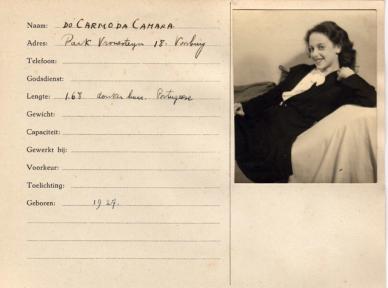 Naam: DO CARMO DA CAMARA
Adres: Park Vronesteyn 18. Voorburg
Telefoon:
Godsdienst:
Lengte: 1.68 donker haar. Portugese
Gewicht:
Capaciteit:
Gewerkt bij:
Voorkeur:
Toelichting:
Geboren: 1929.